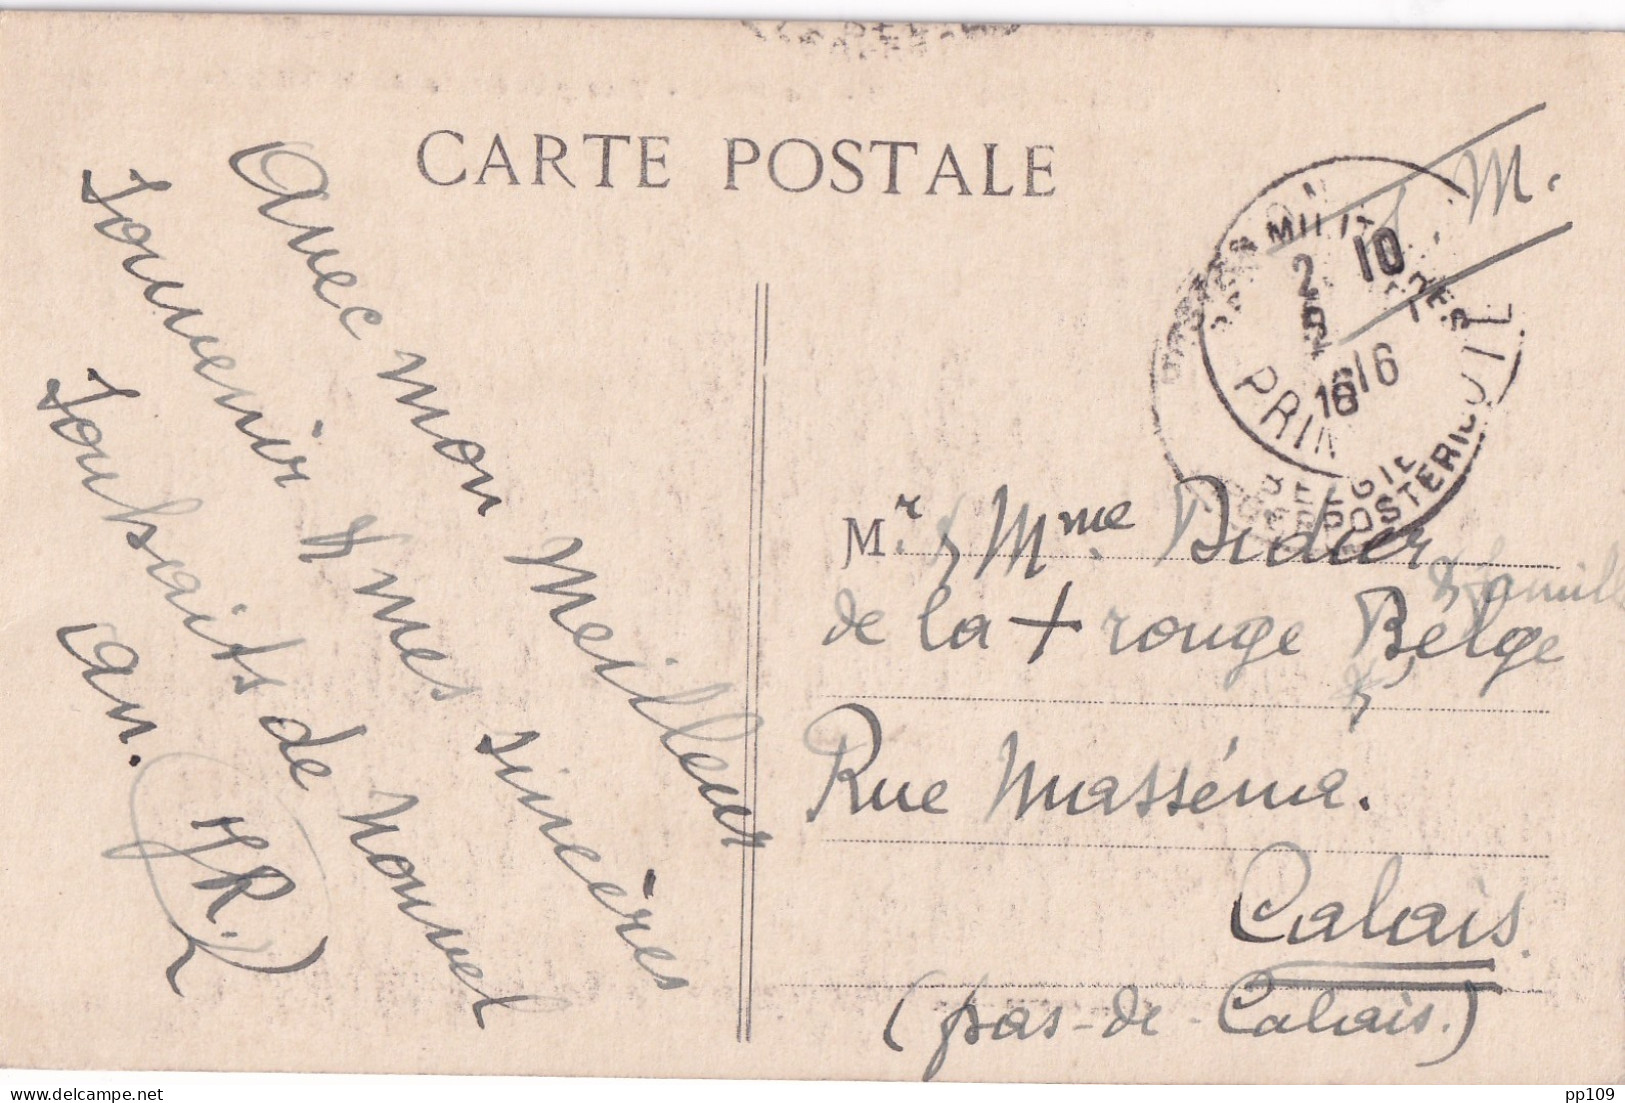 CARTE POSTALE
S. M.
Avec mon meilleur
souvenir & mes sincères
souhaits de nouvel
an.
HR.
POSTES MILITAIRES
2 10
16 16
PRIN
POSTERIJ
Mr. & Mme. Didier
& famille
de la + rouge Belge
Rue Masséna.
Calais.
(pas-de-Calais.)
pp109